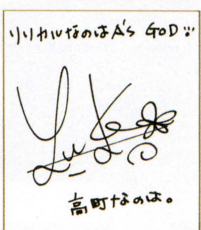 リリカルなのはA's GOD
高町なのは。